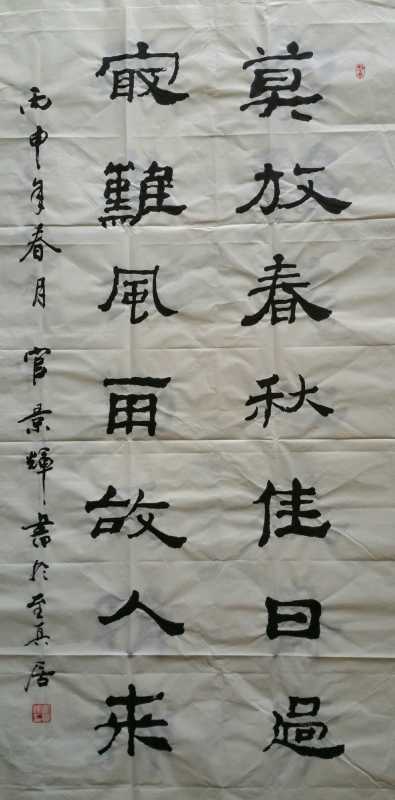 莫放春秋佳日過
最難風雨故人來
丙申年春月 官景輝書於至真居